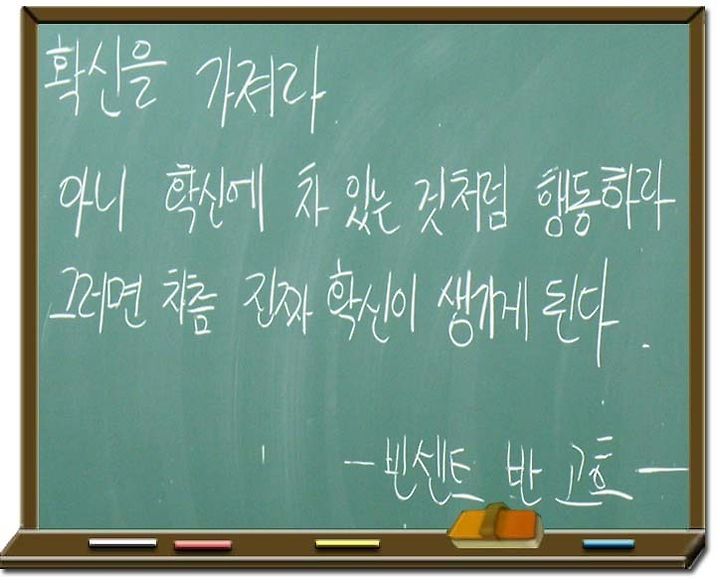 확신을 가져라
아니 확신에 차 있는 것처럼 행동하라
그러면 차츰 진짜 확신이 생기게 된다.
- 빈센트 반 고흐 -